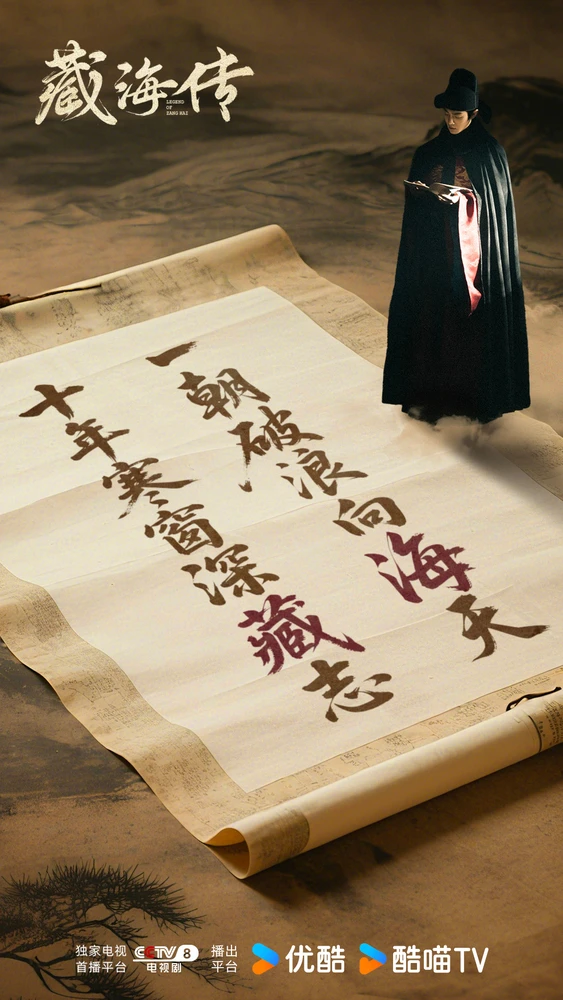 藏海传
LEGEND
OF
ZANG HAI
十年寒窗深藏志
一朝破浪向海天
独家电视
首播平台
CCTV 8
电视剧
播出
平台
优酷
酷喵TV